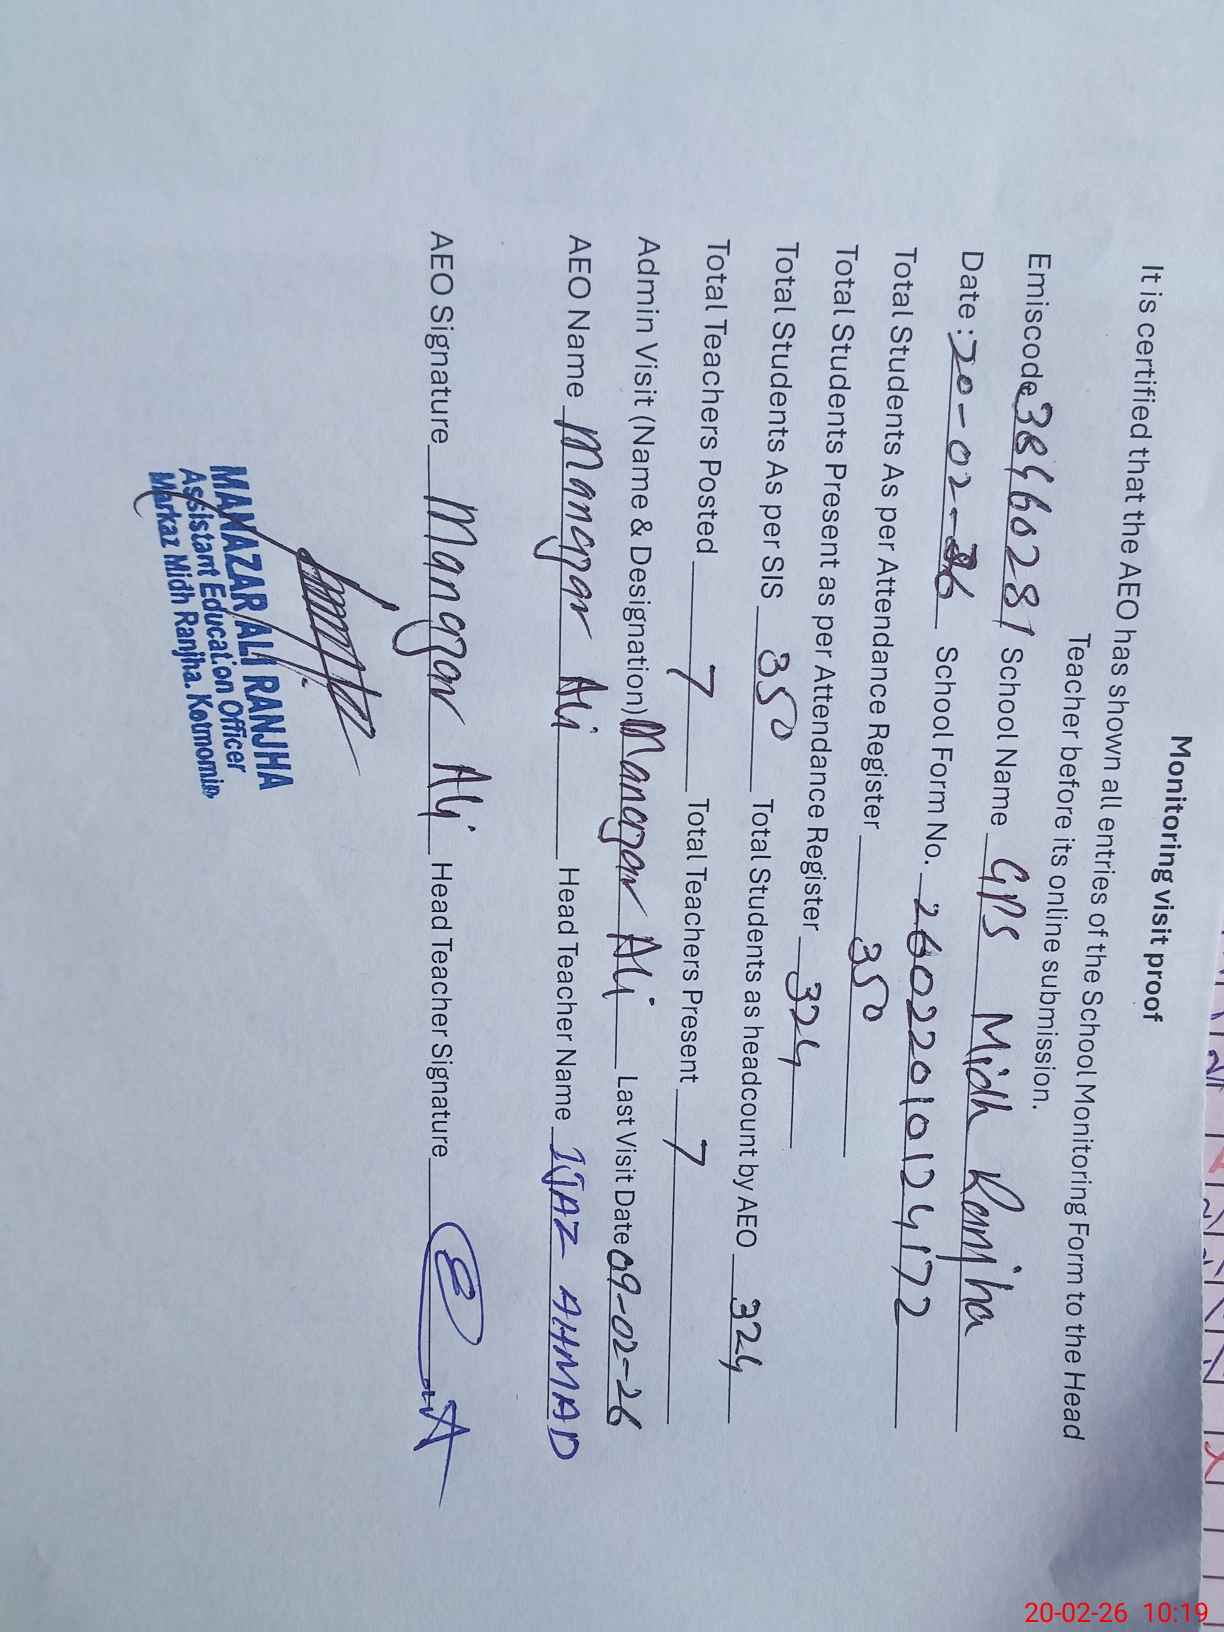 Monitoring visit proof
It is certified that the AEO has shown all entries of the School Monitoring Form to the Head
Teacher before its online submission.
Emiscode 38460281 School Name GPS Midh Ranjha
Date : 20-02-26 School Form No. 26022010124172
Total Students As per Attendance Register 350
Total Students Present as per Attendance Register 324
Total Students As per SIS 350 Total Students as headcount by AEO 324
Total Teachers Posted 7 Total Teachers Present 7
Admin Visit (Name & Designation) Manazar Ali Last Visit Date 09-02-26
AEO Name Manazar Ali Head Teacher Name IJAZ AHMAD
AEO Signature Manazar Ali Head Teacher Signature
MANAZAR ALI RANJHA
Assistant Education Officer
Markaz Midh Ranjha. Kotmomin
20-02-26 10:19